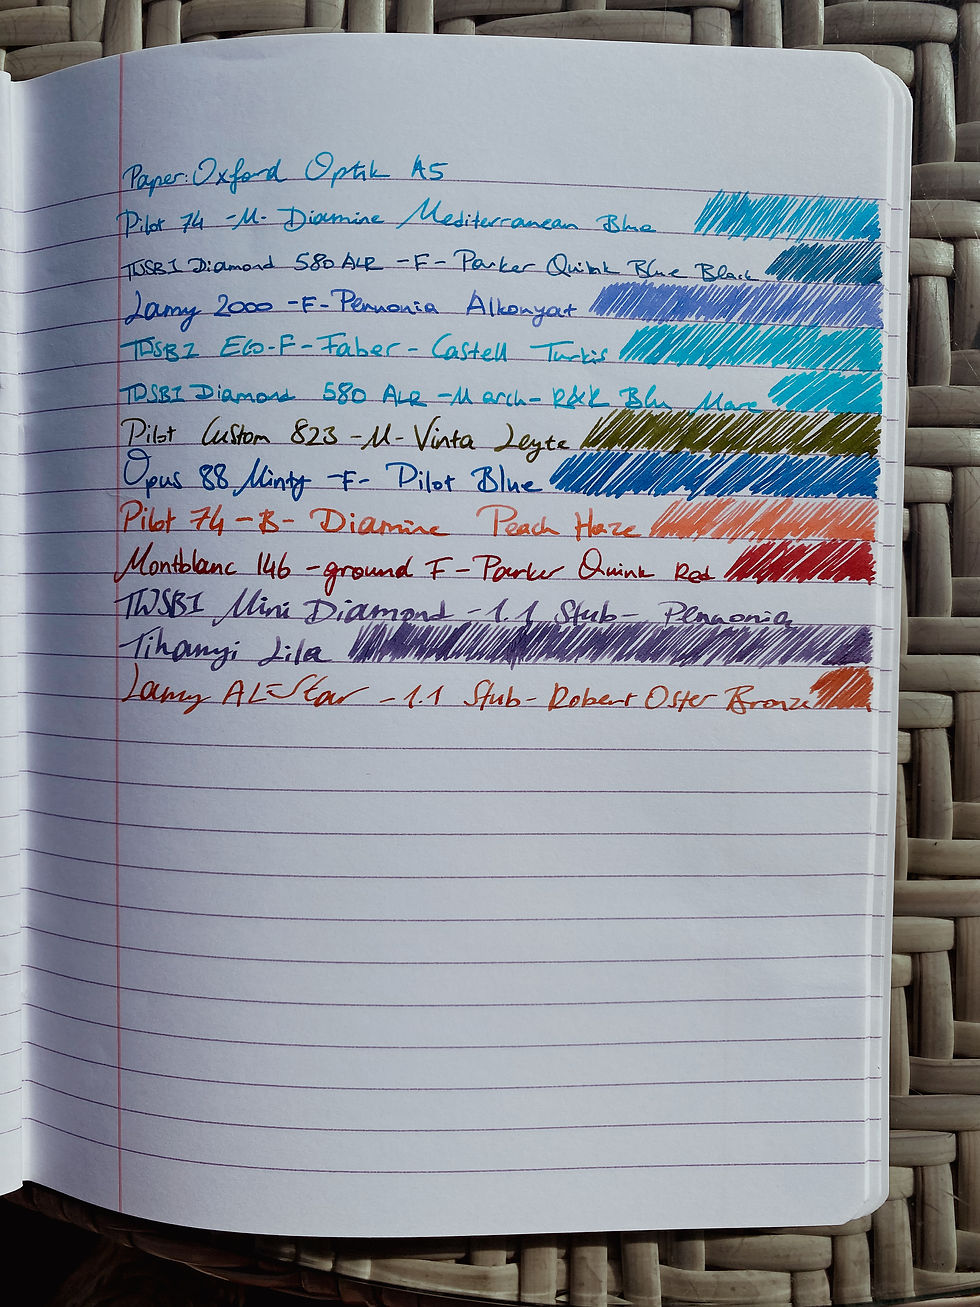 Paper: Oxford Optik A5
Pilot 74 -M- Diamine Mediterranean Blue
TWSBI Diamond 580 ALR -F- Parker Quink Blue Black
Lamy 2000 -F- Pennonia Alkonyat
TWSBI ECO-F- Faber-Castell Turkis
TWSBI Diamond 580 ALR -M arch- R&K Blu Mare
Pilot Custom 823 -M- Vinta Leyte
Opus 88 Minty -F- Pilot Blue
Pilot 74 -B- Diamine Peach Haze
Montblanc 146 -ground F- Parker Quink Red
TWSBI Mini Diamond -1.1 Stub- Pennonia
Tihanyi Lila
Lamy AL-Star -1.1 Stub- Robert Oster Bronze